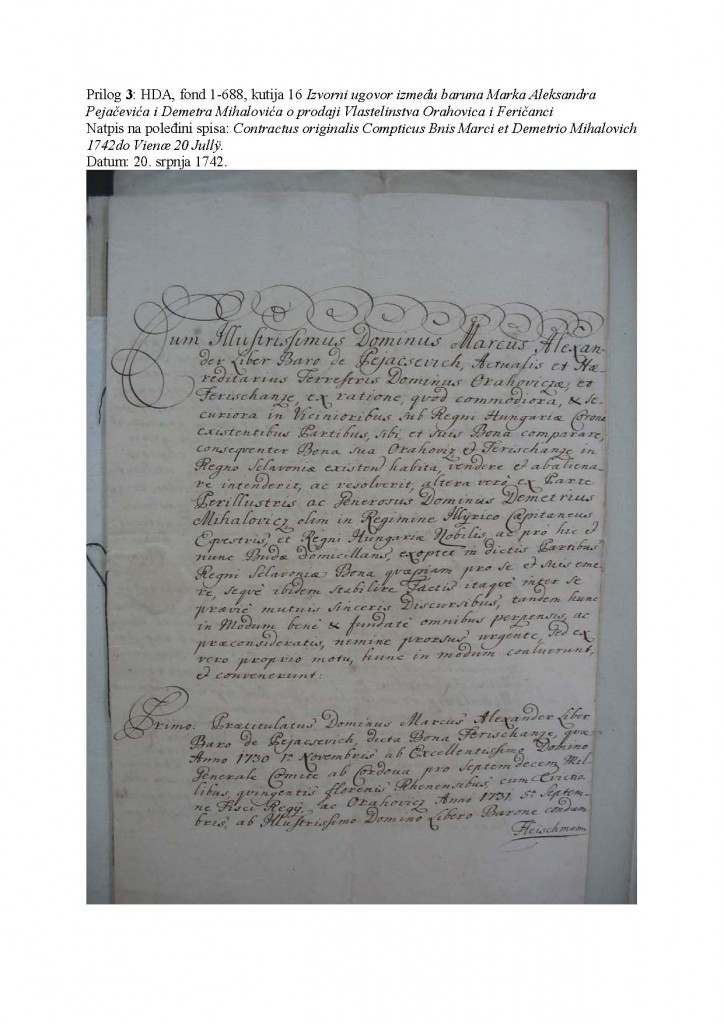 Prilog 3: HDA, fond 1-688, kutija 16 Izvorni ugovor između baruna Marka Aleksandra
Pejačevića i Demetra Mihalovića o prodaji Vlastelinstva Orahovica i Feričanci
Natpis na poleđini spisa: Contractus originalis Compticus Bnis Marci et Demetrio Mihalovich
1742do Vienæ 20 Jullÿ.
Datum: 20. srpnja 1742.
Cum Illustrissimus Dominus Marcus Alexan-
der Liber Baro de Pejacsevich, Actualis et Hæ-
reditarius Terrestris Dominus Orahoviczæ, et
Ferischanze, ex ratione, quod commodiora, & se-
curiora in Vicinioribus sub Regni Hungariæ Corona
existentibus Partibus, sibi, et suis Bona comparare,
consequenter Bona sua Orahoviz & Ferischanze in
Regno Sclavoniæ existen habita, vendere et abaliena-
re intenderit, ac resolverit, altera verò ex Parte
Perillustris ac Generosus Dominus Demetrius
Mihalovicz olim in Regimine Illÿrico Capitaneus
Equestris, et Regni Hungariæ Nobilis, ac pro hic et
nunc Budæ domicillans, exoptet in dictis Partibus
Regni Sclavoniæ Bona quæpiam pro se et suis eme-
re, seqvè ibidem stabilire Factis itaqvè inter se
præviè mutuis sinceris Discursibus, tandem hunc
in Modum benè & fundatè omnibus perpensis, ac
præconsideratis, nemine prorsus urgente, sed ex
vero proprio motu, hunc in modum concluerunt,
& convenerunt:
Primo: Prætitulatus Dominus Marcus Alexander Liber
Baro de Pejacsevich, dicta Bona Ferischanze, quæ
Anno 1730 1a Novembris ab Excellentissimo Domino
Generale Comite ab Cordova pro Septemdecem Mil-
libus, quingentis florenis Rhenensibus, cum Evictio-
ne Fisci Regÿ, ac Orahovicz Anno 1731, 5a Septem-
bris, ab Illustrissimo Domino Libero Barone condam
Fleischmann